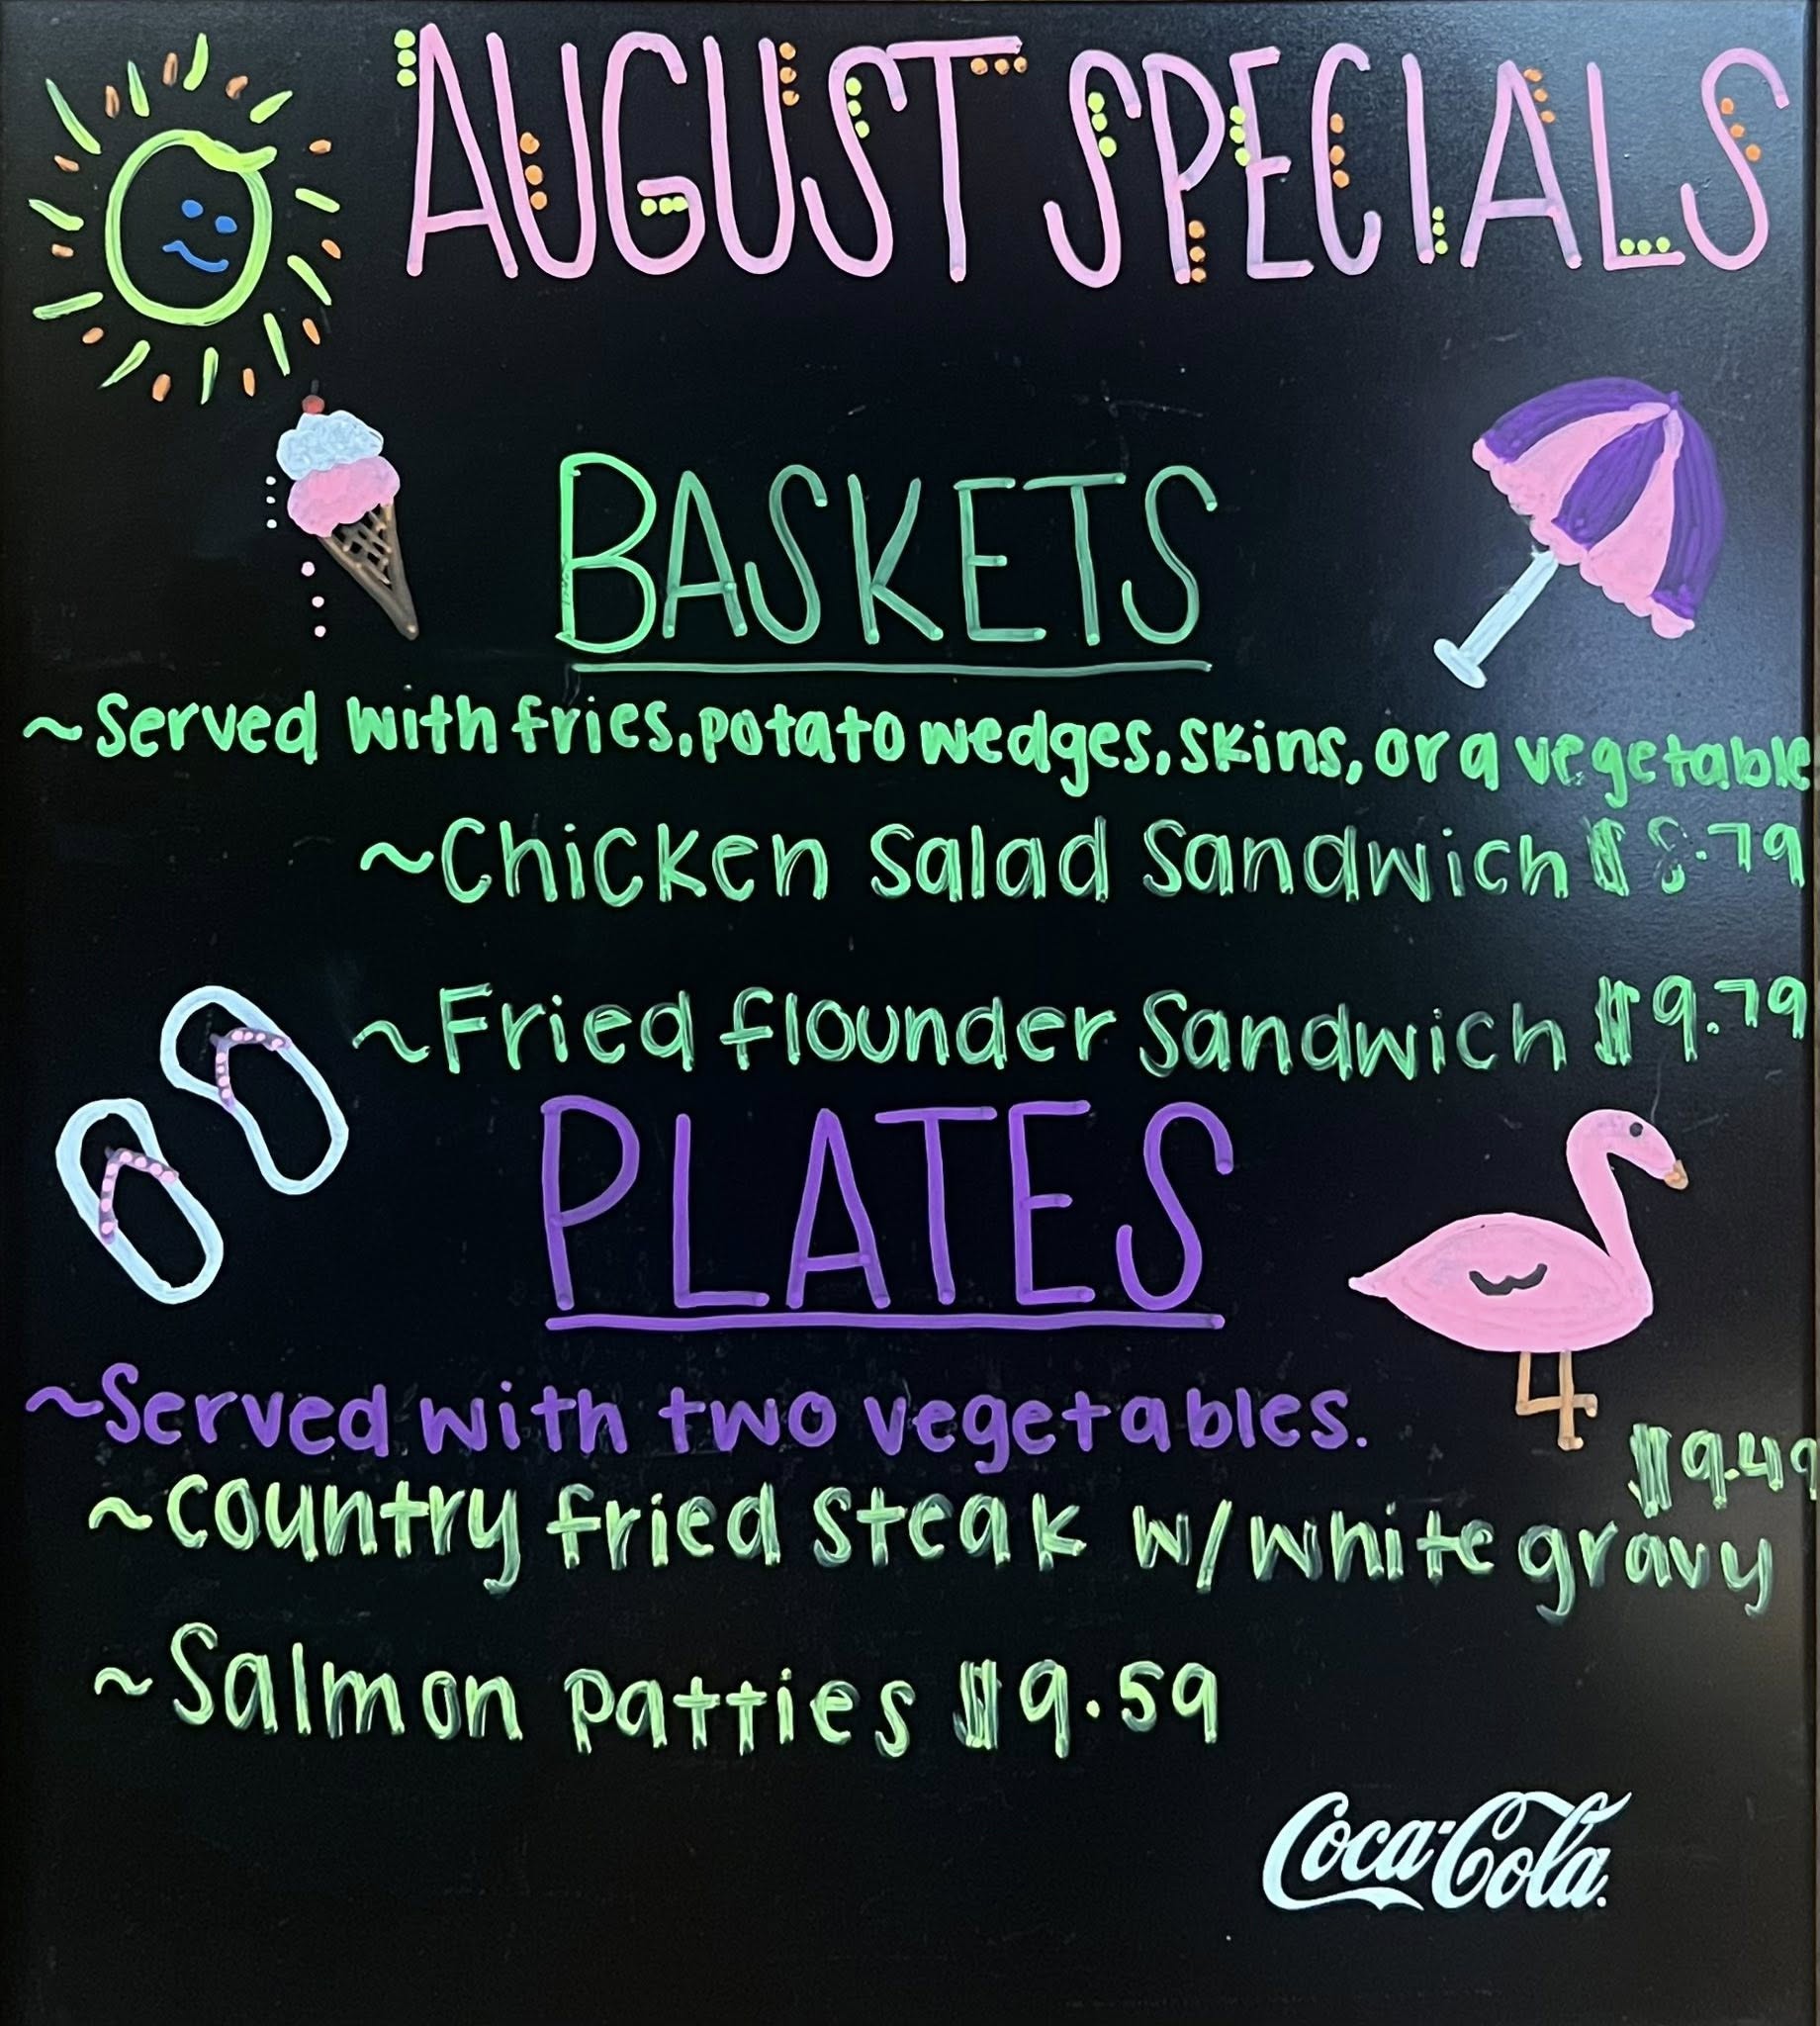 AUGUST SPECIALS
BASKETS
~Served with fries, potato wedges, skins, or a vegetable
~Chicken Salad Sandwich $8.79
~Fried flounder Sandwich $9.79
PLATES
~Served with two vegetables.
$9.49
~Country fried steak w/white gravy
~Salmon patties $9.59
Coca-Cola